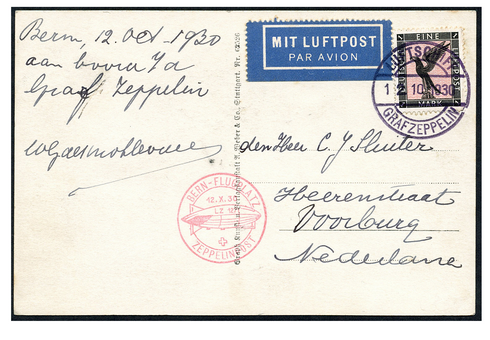 Bern, 12 Oct 1930
aan boord v/d
Graf Zeppelin
MIT LUFTPOST
PAR AVION
EINE
MARK
LUFTSCHIFF
12.10.1930
GRAF ZEPPELIN
den Heer C. J. Sluiter
Heerenstraat
Voorburg
Nederland
BERN-FLUGPLATZ
12.X.30
LZ 127
ZEPPELINPOST